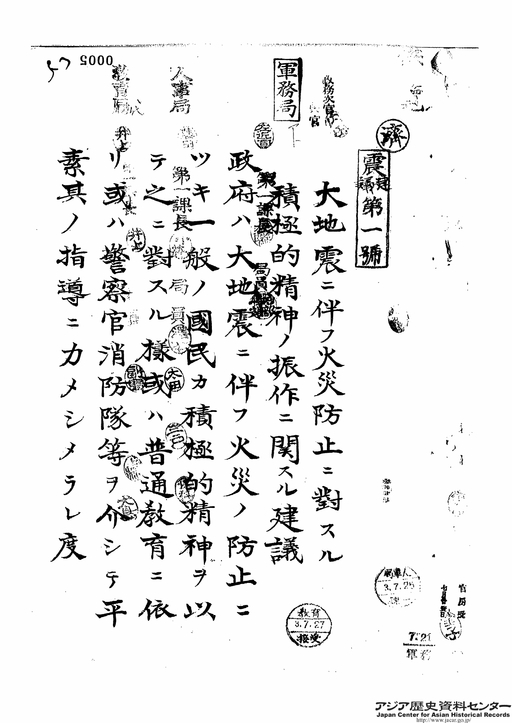 0005
軍務局
人事局
教育局
濟
震建議第一號
大地震ニ伴フ火災防止ニ對スル
積極的精神ノ振作ニ関スル建議
政府ハ大地震ニ伴フ火災ノ防止ニ
ツキ一般ノ國民カ積極的精神ヲ以
テ之ニ對スル樣或ハ普通敎育ニ依
リ或ハ警察官消防隊等ヲ介シテ平
素其ノ指導ニ力メシメラレ度
第一課長
局員
第一課長
局員
教育
3.7.27
接受
3.7.25
7.21
軍務
官房
アジア歴史資料センター
Japan Center for Asian Historical Records
http://www.jacar.go.jp/